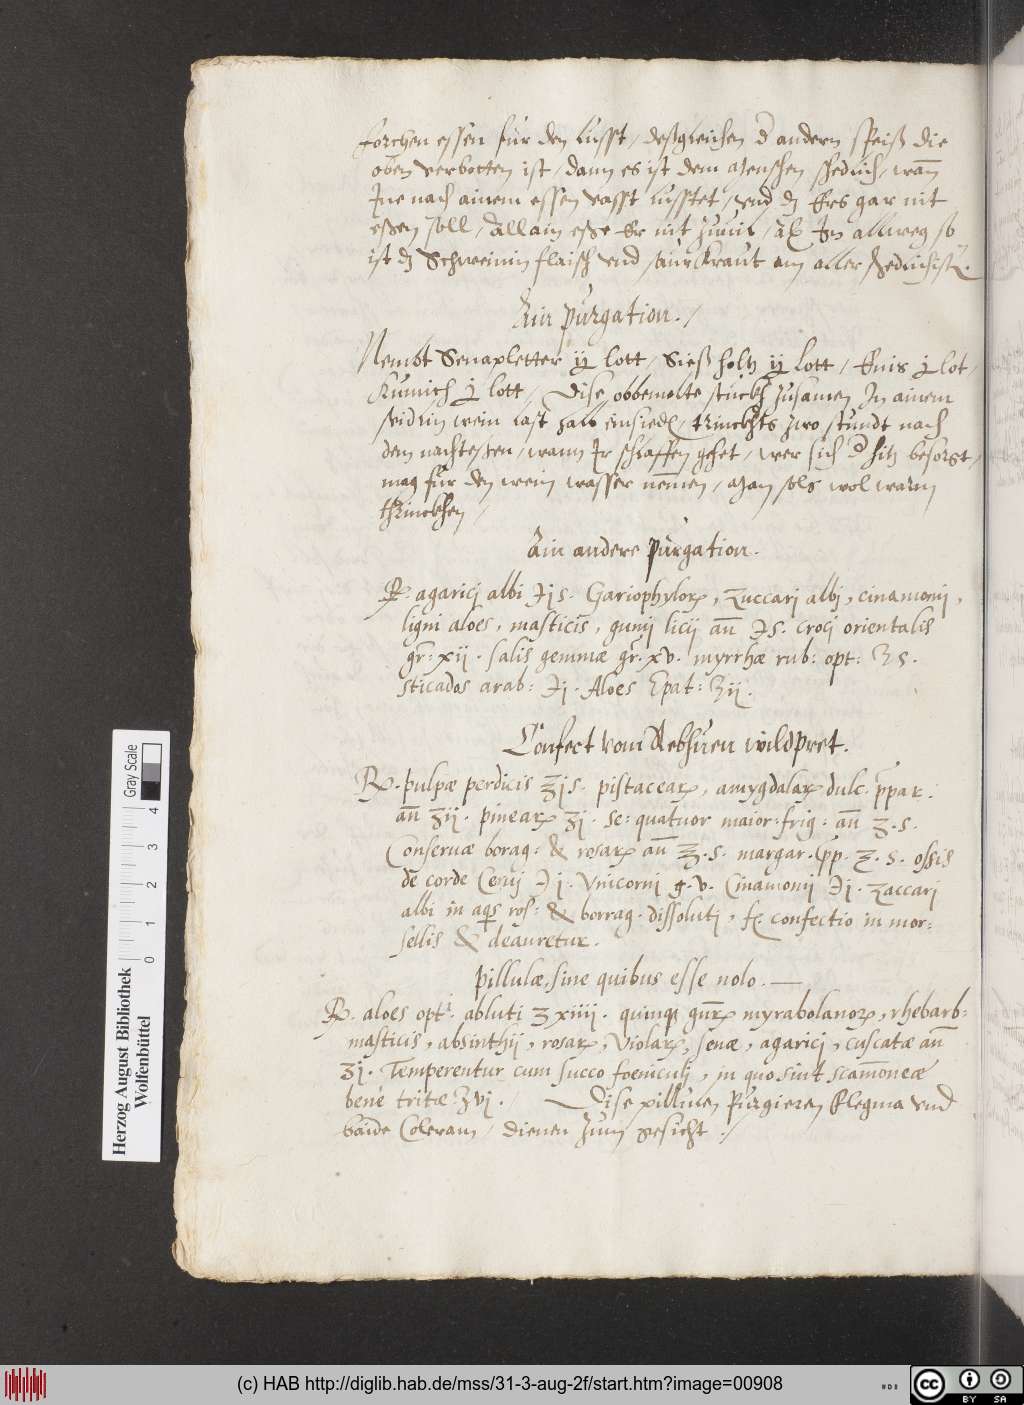 forchen essen für den lufft / deßgleichen d andern speiß die
oben verbotten ist / dann es ist dem menschen schedlich / wañ
Jne nach ainem essen vasst lufftet / vnd dz Ers gar nit
essen soll / Allain esse Er nit zuuil / Jn allweg so
ist dz Schweinin flaisch vnd saurkraut am aller schedlichisten.
Ain purgation. /
Nembt Senapletter ij lott / Süeßholtz ij lott / Enis j lot /
Kümich j lott / Dise obbemelte stückh zusamen Jn ainem
seidlin wein last halb einsieden / trinckhts zwo stundt nach
dem nachtessen / wann Jr schlaffen gehet / wer sich d hitz besorgt /
mag für den wein wasser nemen / Man sols wol warm
thrinckhen /
Ain andere purgation.
℞. agarici albi ℈j s. Gariophyloꝝ, zuccari albi, cinamomi,
ligni aloes, masticis, gumi licij añ ℈s. croci orientalis
gr: xij. salis gemmæ gr. xv. myrrhæ rub: opt: ʒs.
sticados arab: ℈j. Aloes Epat: ʒij.
Confect vom Rebhuen wildpret.
℞. pulpæ perdicis ℥j s. pistacearꝝ, amygdalarꝝ dulc. ppar.
añ ʒij. pinearꝝ ʒj. se: quatuor maior: frig: añ ʒ.s.
Conseruæ borag: & rosarꝝ añ ℥.s. margar. pp. ʒ.s. ossis
de corde Cerui ℈j. Vnicorni g.v. Cinamomi ℈j. zaccari
albi in aqs ros: & borrag. dissoluti, f. confectio in mor:
sellis & deauretur.
pillulæ, sine quibus esse nolo. —
℞. aloes opti. abluti ʒxiiii. quinqꝫ gñrꝝ myrabolanorꝝ, rhebarb:
masticis, absinthij, rosarꝝ, Violarꝝ, senæ, agarici, cuscutæ añ
ʒj. Temperentur cum succo foeniculi, in quo sint scamoneæ
bene tritæ ʒvj. / Dise pilluen purgieren flegma vnd
baide Coleram / dienen zum gesicht :/
Herzog August Bibliothek
Wolfenbüttel
0 1 2 3 4
Gray Scale
(c) HAB http://diglib.hab.de/mss/31-3-aug-2f/start.htm?image=00908
cc BY SA